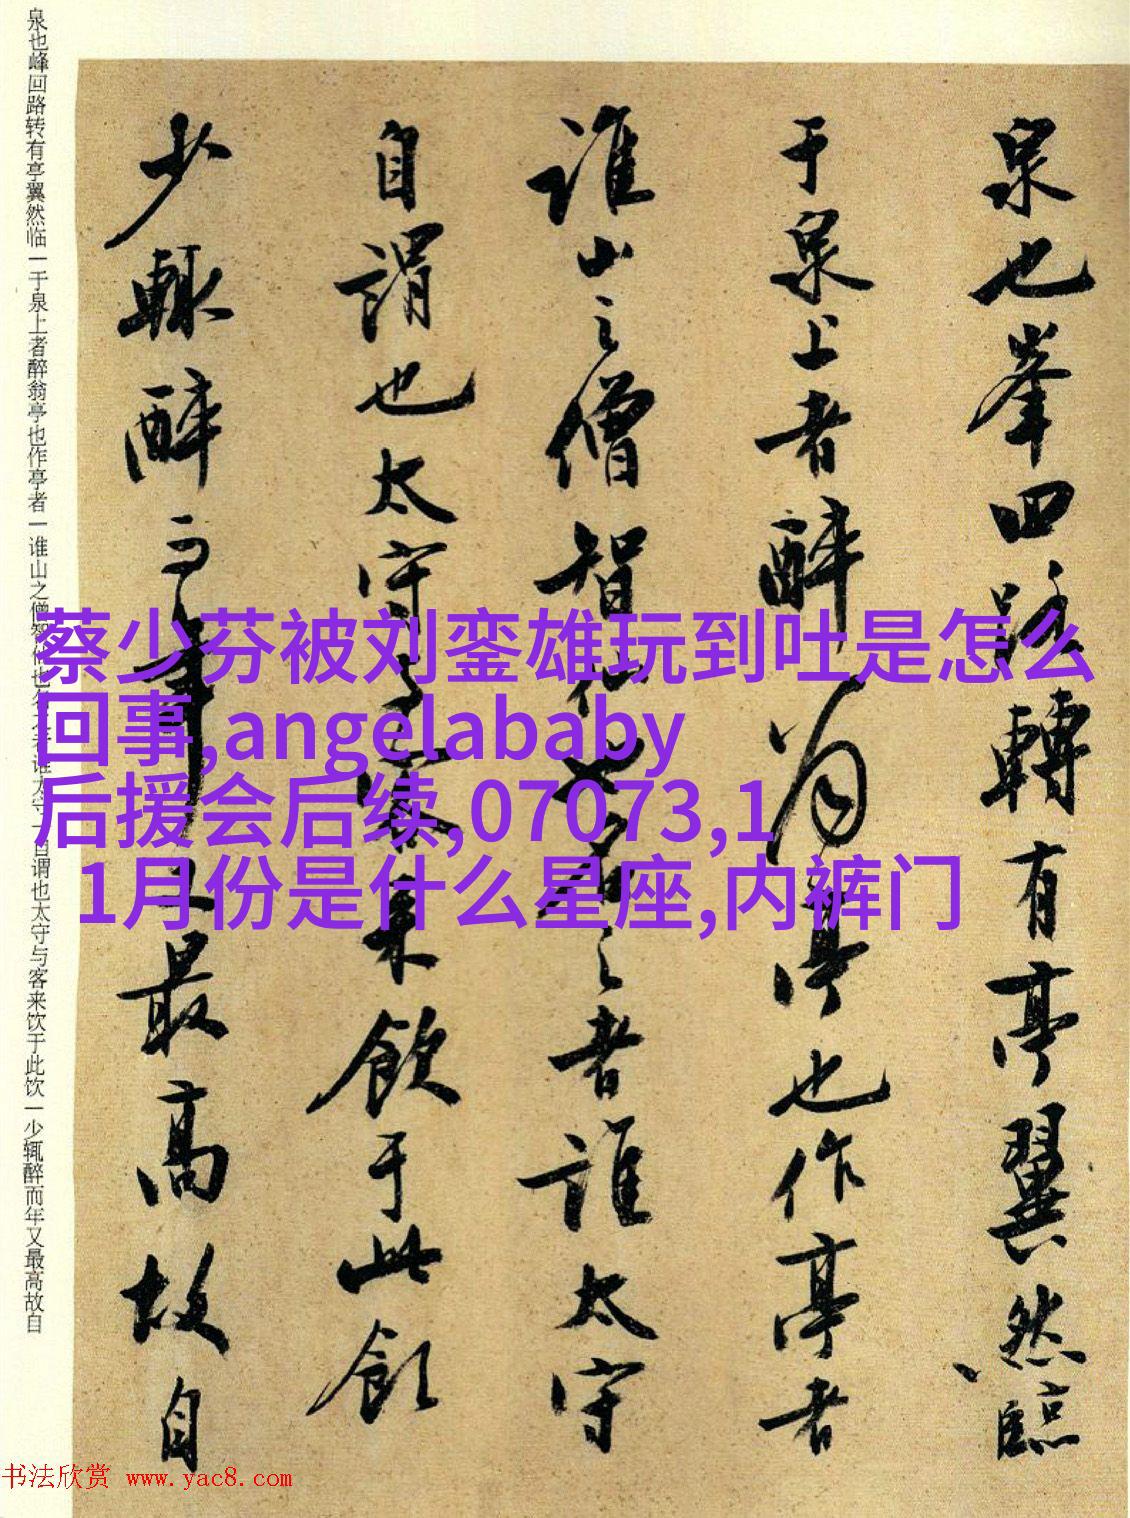 泉也峯回路轉有亭翼然臨
于泉上者醉翁亭也作亭者
誰山之僧智仙也名之者誰太守
自謂也太守与客来飲于此飲
少輒醉而年又最高故自
泉也峰回路转有亭翼然临一于泉上者醉翁亭也作亭者一谁山之僧智仙也名之者谁太守一自谓也太守与客来饮于此饮一少辄醉而年又最高故自
蔡少芬被刘銮雄玩到吐是怎么
回事,angelababy
后援会后续,07073,1
1月份是什么星座,内裤门
书法欣赏 www.yac8.com